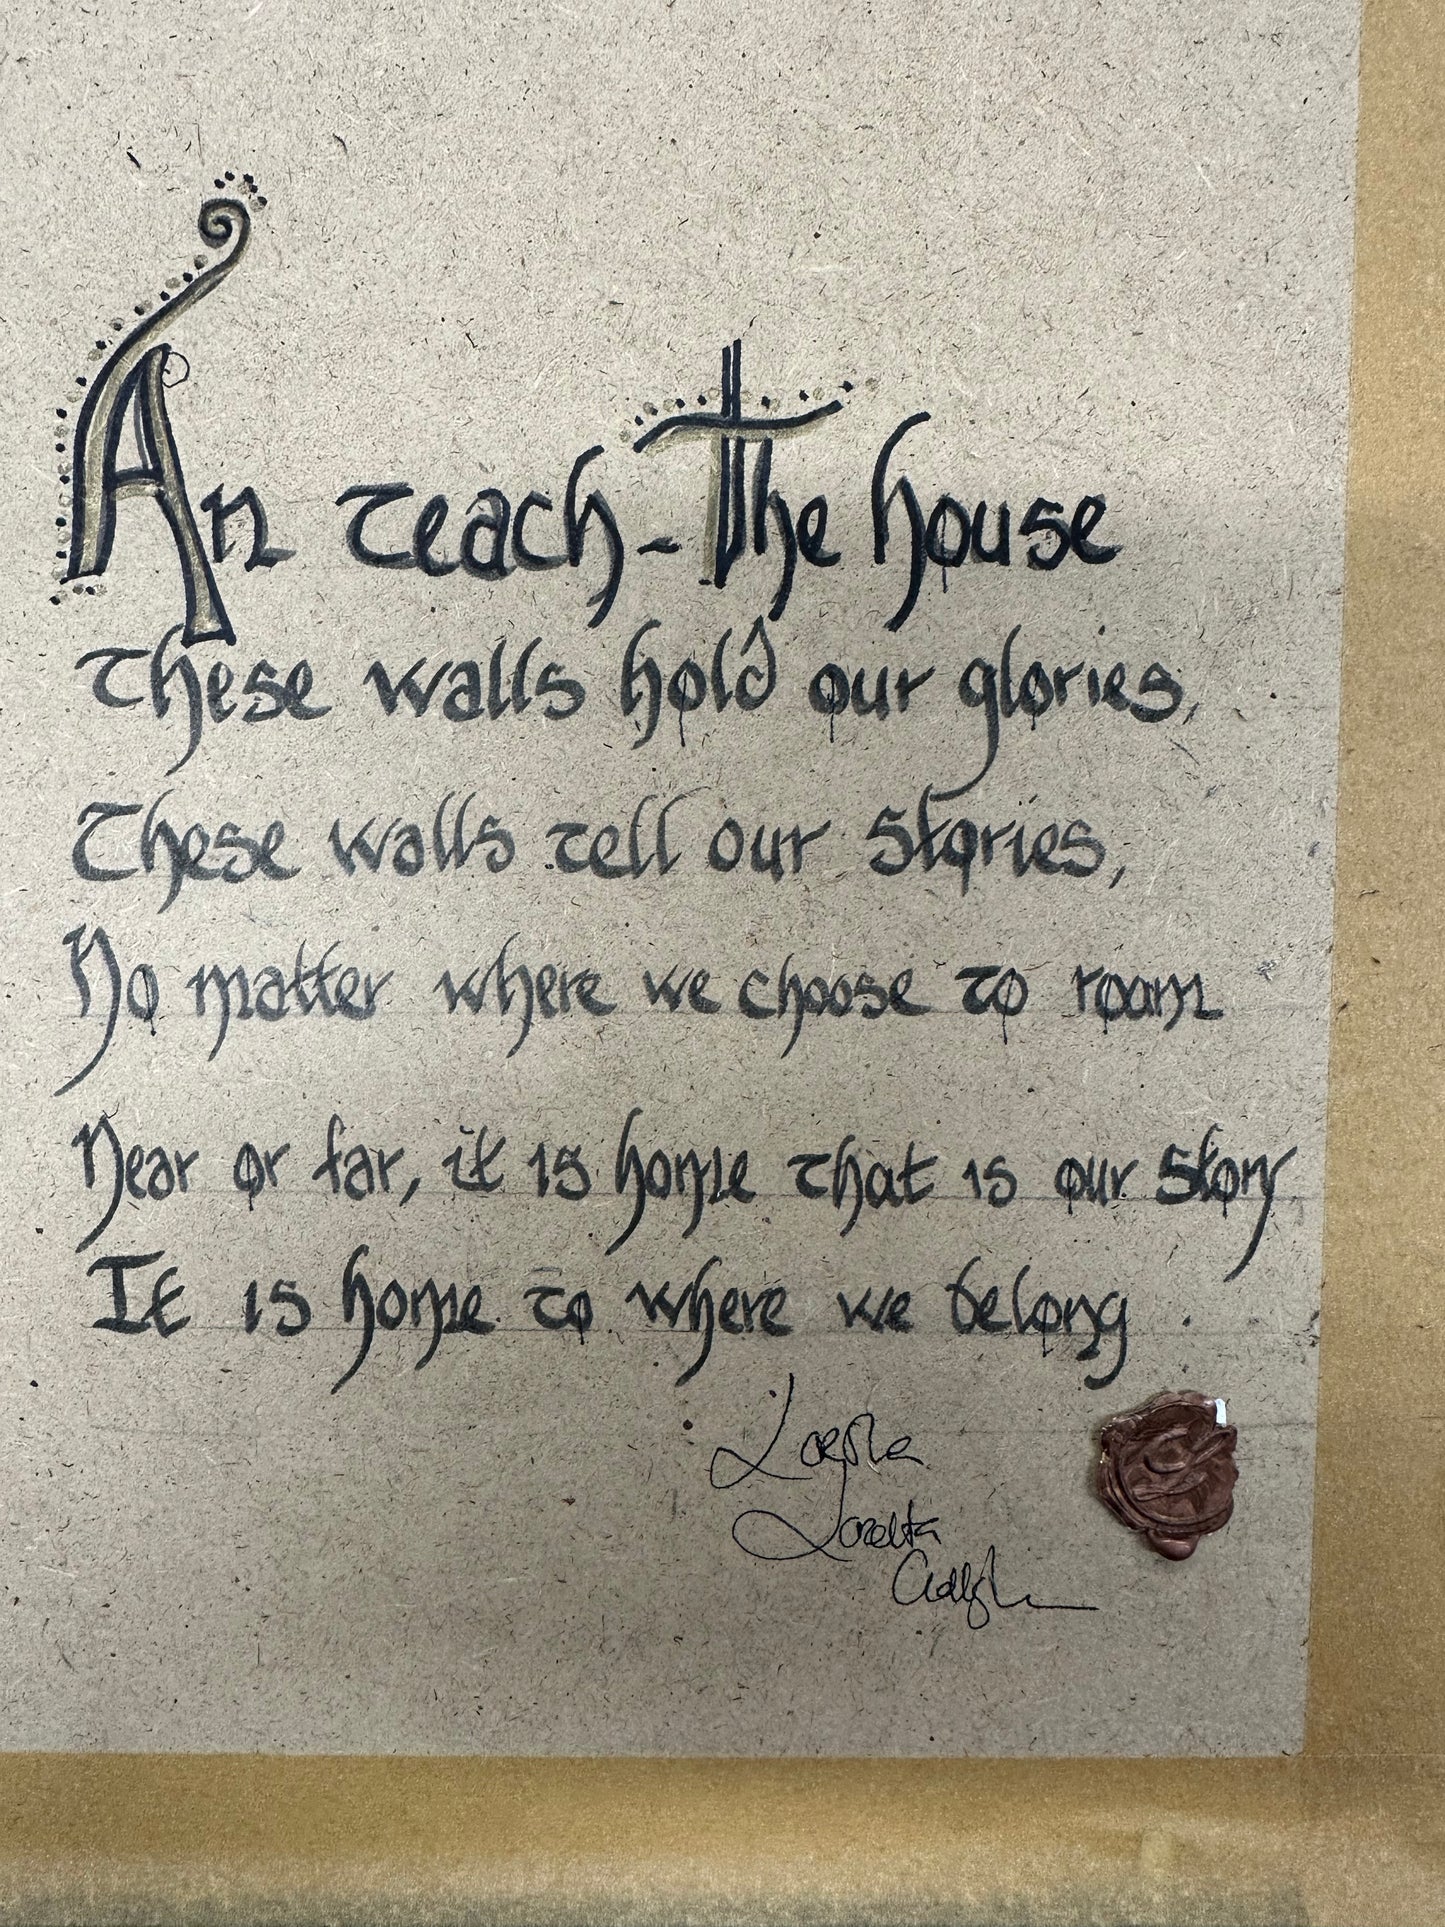 An teach - The house
These walls hold our glories,
These walls tell our stories,
No matter where we choose to roam
Near or far, it is home that is our story
It is home to where we belong.
Loretta